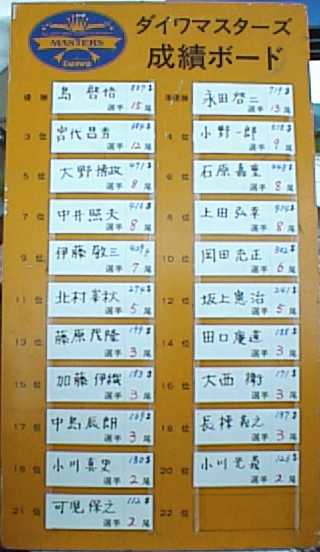 MASTERS
Daiwa
ダイワマスターズ
成績ボード
優勝 島 啓悟 選手 15尾
準優勝 永田啓二 719g 選手 13尾
3位 宮代昌秀 選手 12尾
4位 小野一郎 選手 9尾
5位 大野博政 491g 選手 8尾
6位 石原嘉里 選手 8尾
7位 中井照夫 選手 8尾
8位 上田弘幸 選手 8尾
9位 伊藤敬三 選手 7尾
10位 岡田充正 選手 6尾
11位 北村峯秋 選手 5尾
12位 坂上憲治 241g 選手 5尾
13位 藤原茂隆 選手 3尾
14位 田口庵道 選手 3尾
15位 加藤伊織 183g 選手 3尾
16位 大西衛 171g 選手 3尾
17位 中島辰朗 169g 選手 3尾
18位 選手 3尾
19位 小川真史 130g 選手 2尾
20位 小川 選手 2尾
21位 可児保之 112g 選手 2尾
22位